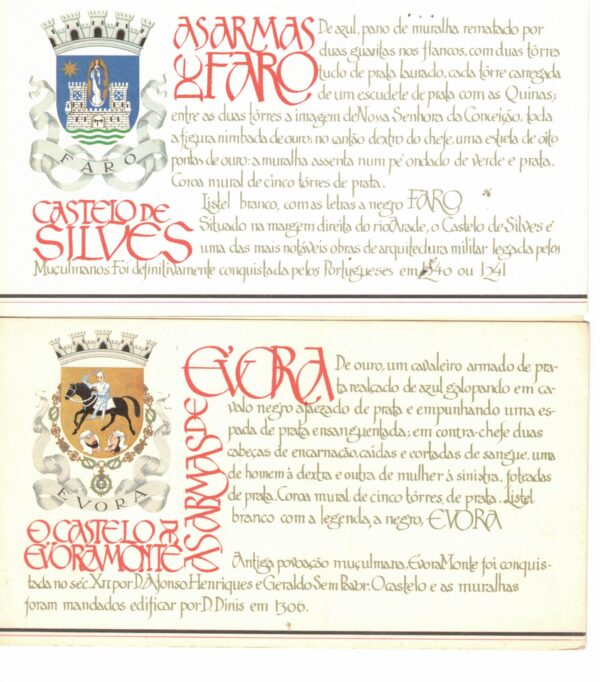 AS ARMAS DE FARO
De azul, pano de muralha rematado por
duas guaritas nos flancos, com duas tôrres
tudo de prata laurado, cada tôrre carregada
de um escudete de prata com as Quinas;
entre as duas tôrres a imagem de Nossa Senhora da Conceição, toda
a figura nimbada de ouro; no cantão dextro do chefe, uma estrela de oito
pontas de ouro: a muralha assenta num pé ondado de verde e prata.
Coroa mural de cinco tôrres de prata.
Listel branco, com as letras a negro FARO
FARO
CASTELO DE
SILVES
Situado na margem direita do rio Arade, o Castelo de Silves é
uma das mais notáveis obras de arquitetura militar legada pelos
Muçulmanos. Foi definitivamente conquistada pelos Portugueses em 1240 ou 1241
AS ARMAS DE
EVORA
De ouro, um cavaleiro armado de pra-
ta realçado de azul galopando em ca-
valo negro ajaezado de prata e empunhando uma es-
pada de prata ensanguentada; em contra-chefe duas
cabeças de encarnação, caídas e cortadas de sangue, uma
de homem à dextra e outra de mulher à sinistra, foteadas
de prata. Coroa mural de cinco tôrres, de prata. Listel
branco com a legenda, a negro, EVORA
EVORA
O CASTELO DE
EVORAMONTE
Antiga povoação muçulmana, Evora Monte foi conquis-
tada no séc. XII por D. Afonso Henriques e Geraldo Sem Pavor. O castelo e as muralhas
foram mandados edificar por D. Dinis em 1306.